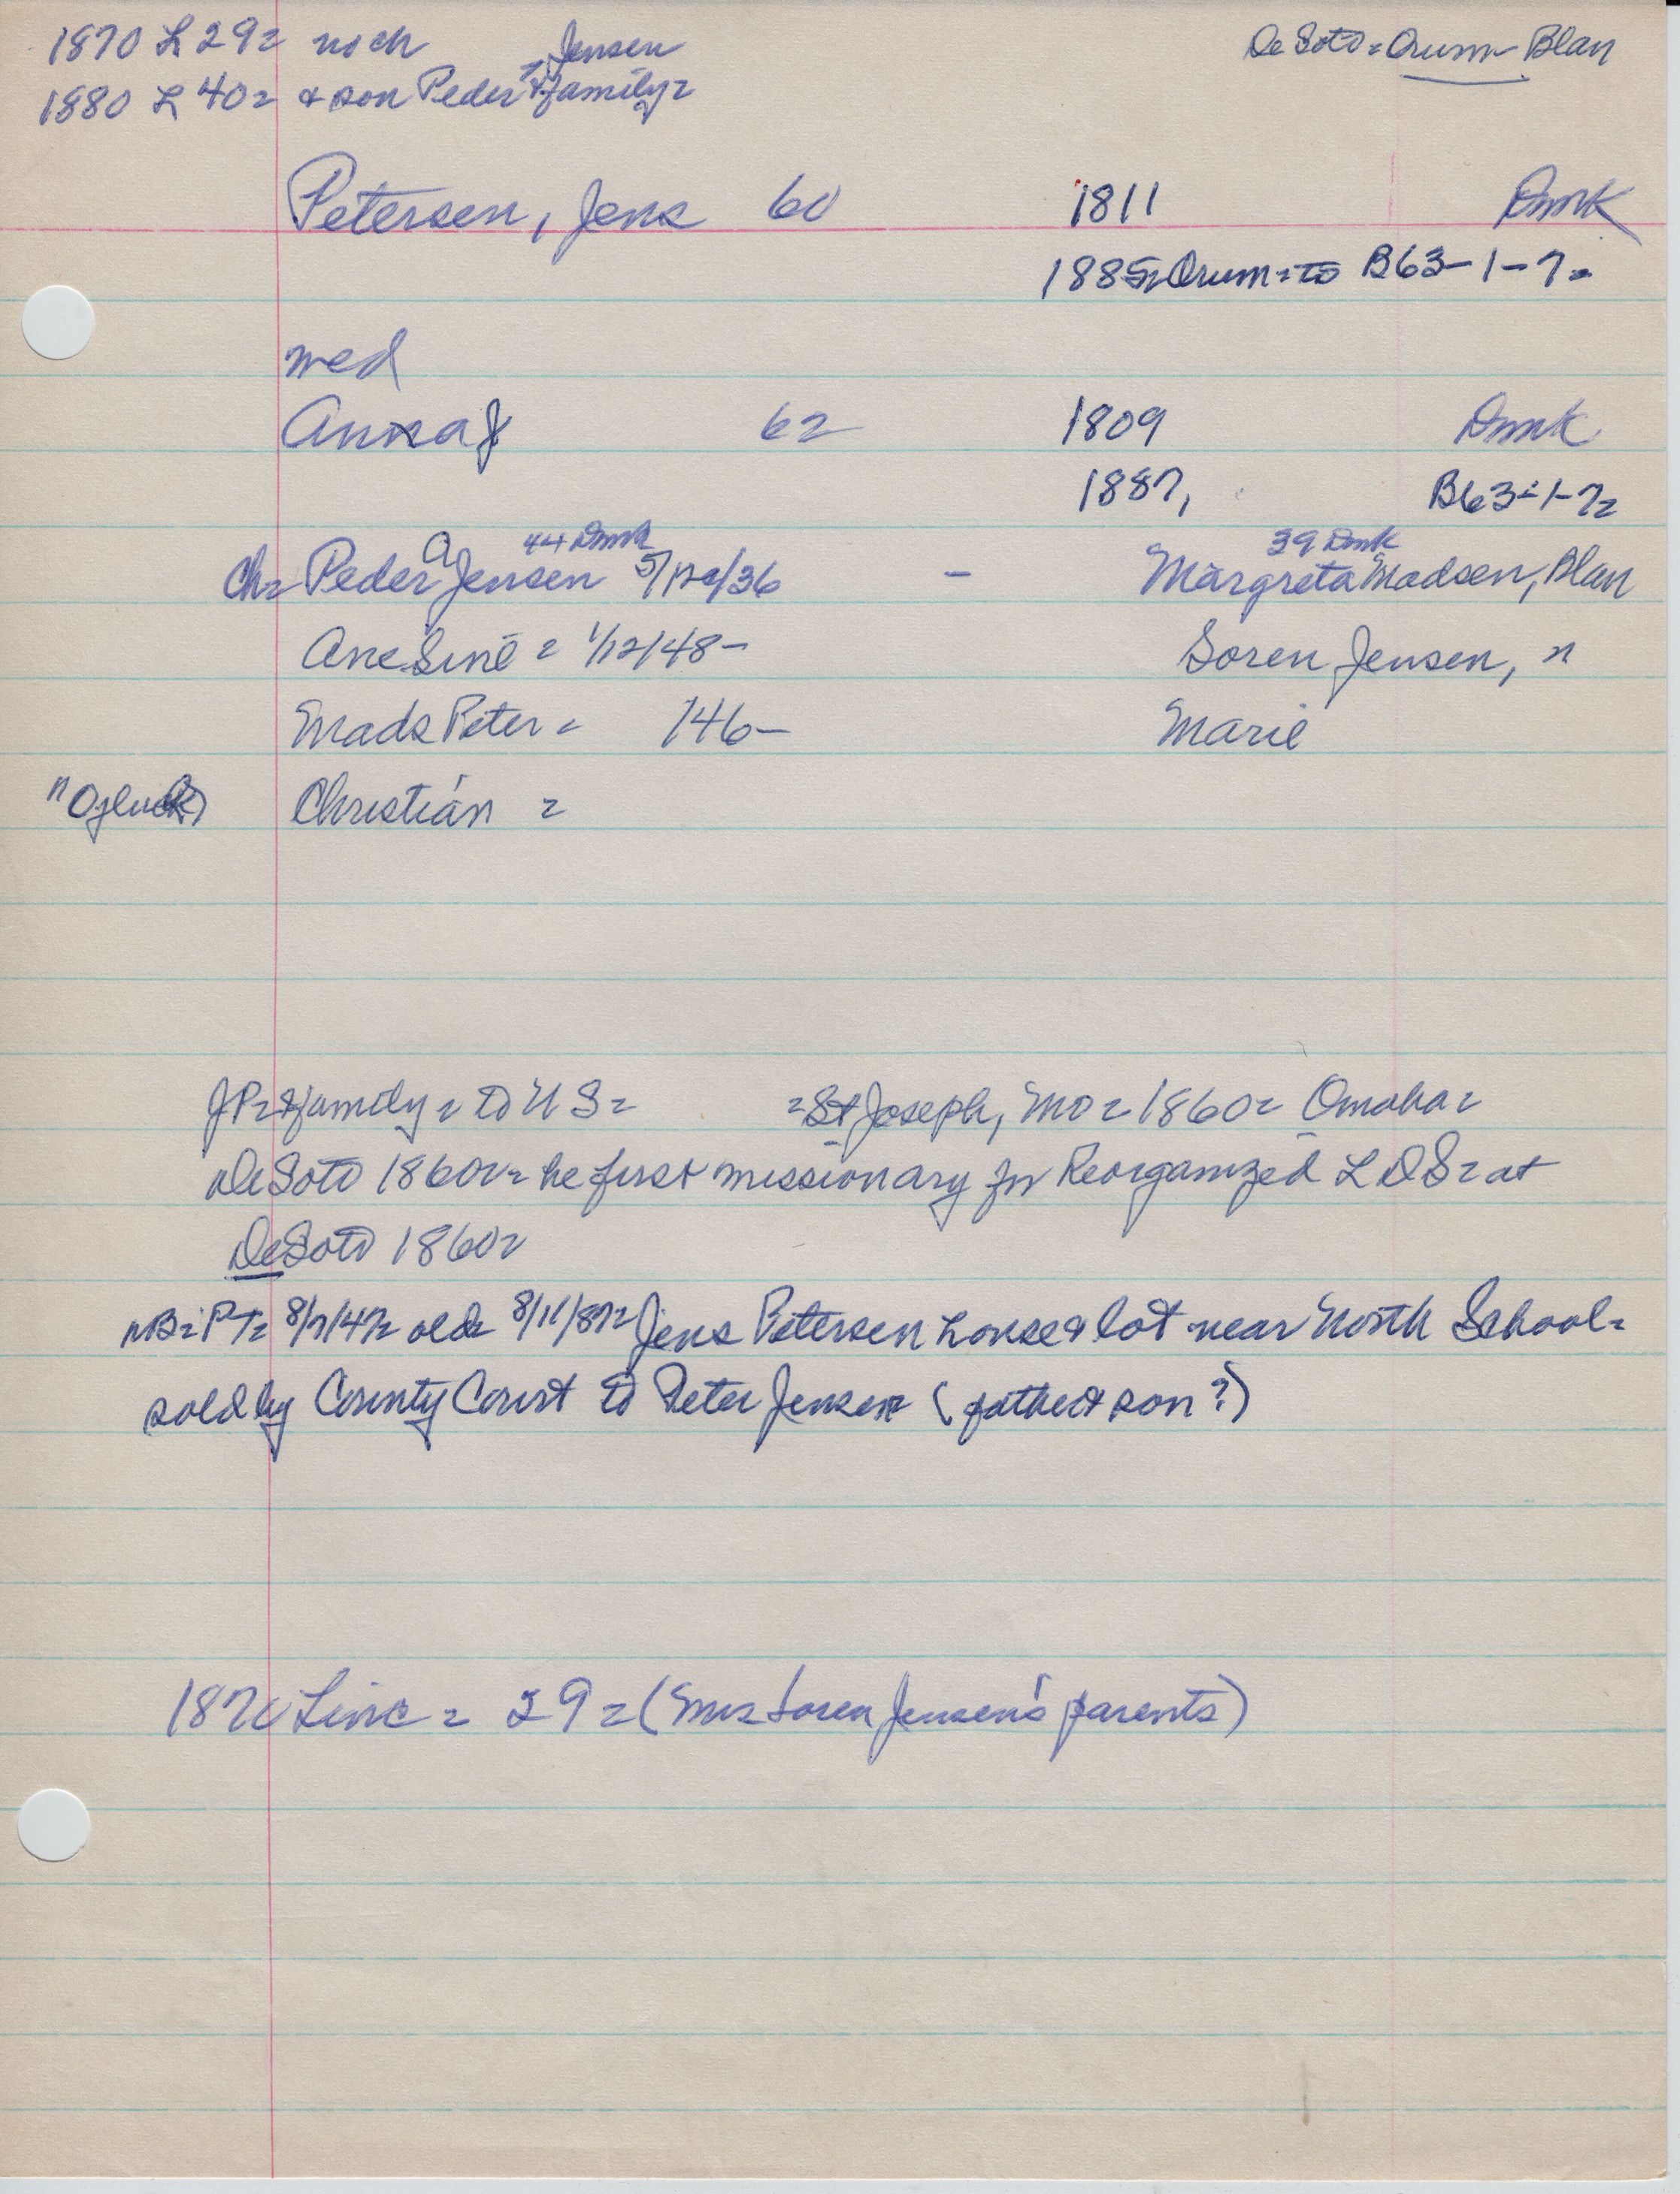 1870 L 29= no ch
De Soto = Orum - Blan
Jensen
1880 L 40= & son Peder & family=
Petersen, Jens 60 1811 Dmk
1885= Orum = to B63-1-7=
med
Anna J 62 1809 Dmk
1887, B63-1-7=
44 Dmk 39 Dmk
Ch= Peder Jensen /36 - Margreta Madsen, Blan
Ane Sine = 1/12/48- Soren Jensen, "
Mads Peter = /46- Marie
Christian =
JP= & family = to U S = = St Joseph, Mo = 1860= Omaha =
DeSoto 1860= he first missionary for Reorganized L D S = at
DeSoto 1860=
8/11/87= Jens Petersen house & lot near North School=
sold by County Court to Peter Jensen (father & son?)
1870 Linc = 29 = (Mrs Soren Jensen's parents)